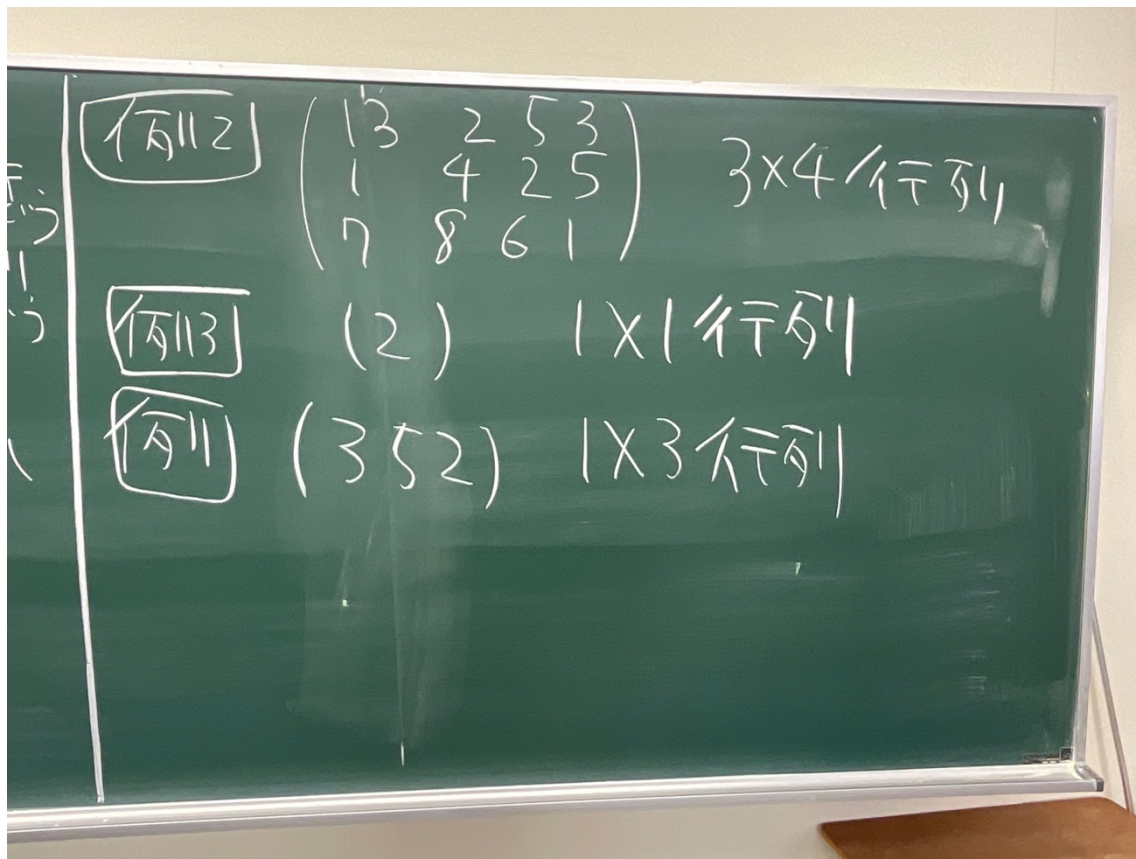 例2 ( 13 2 5 3
1 4 2 5
7 8 6 1 ) 3×4行列
例3 (2) 1×1行列
例 (3 5 2) 1×3行列